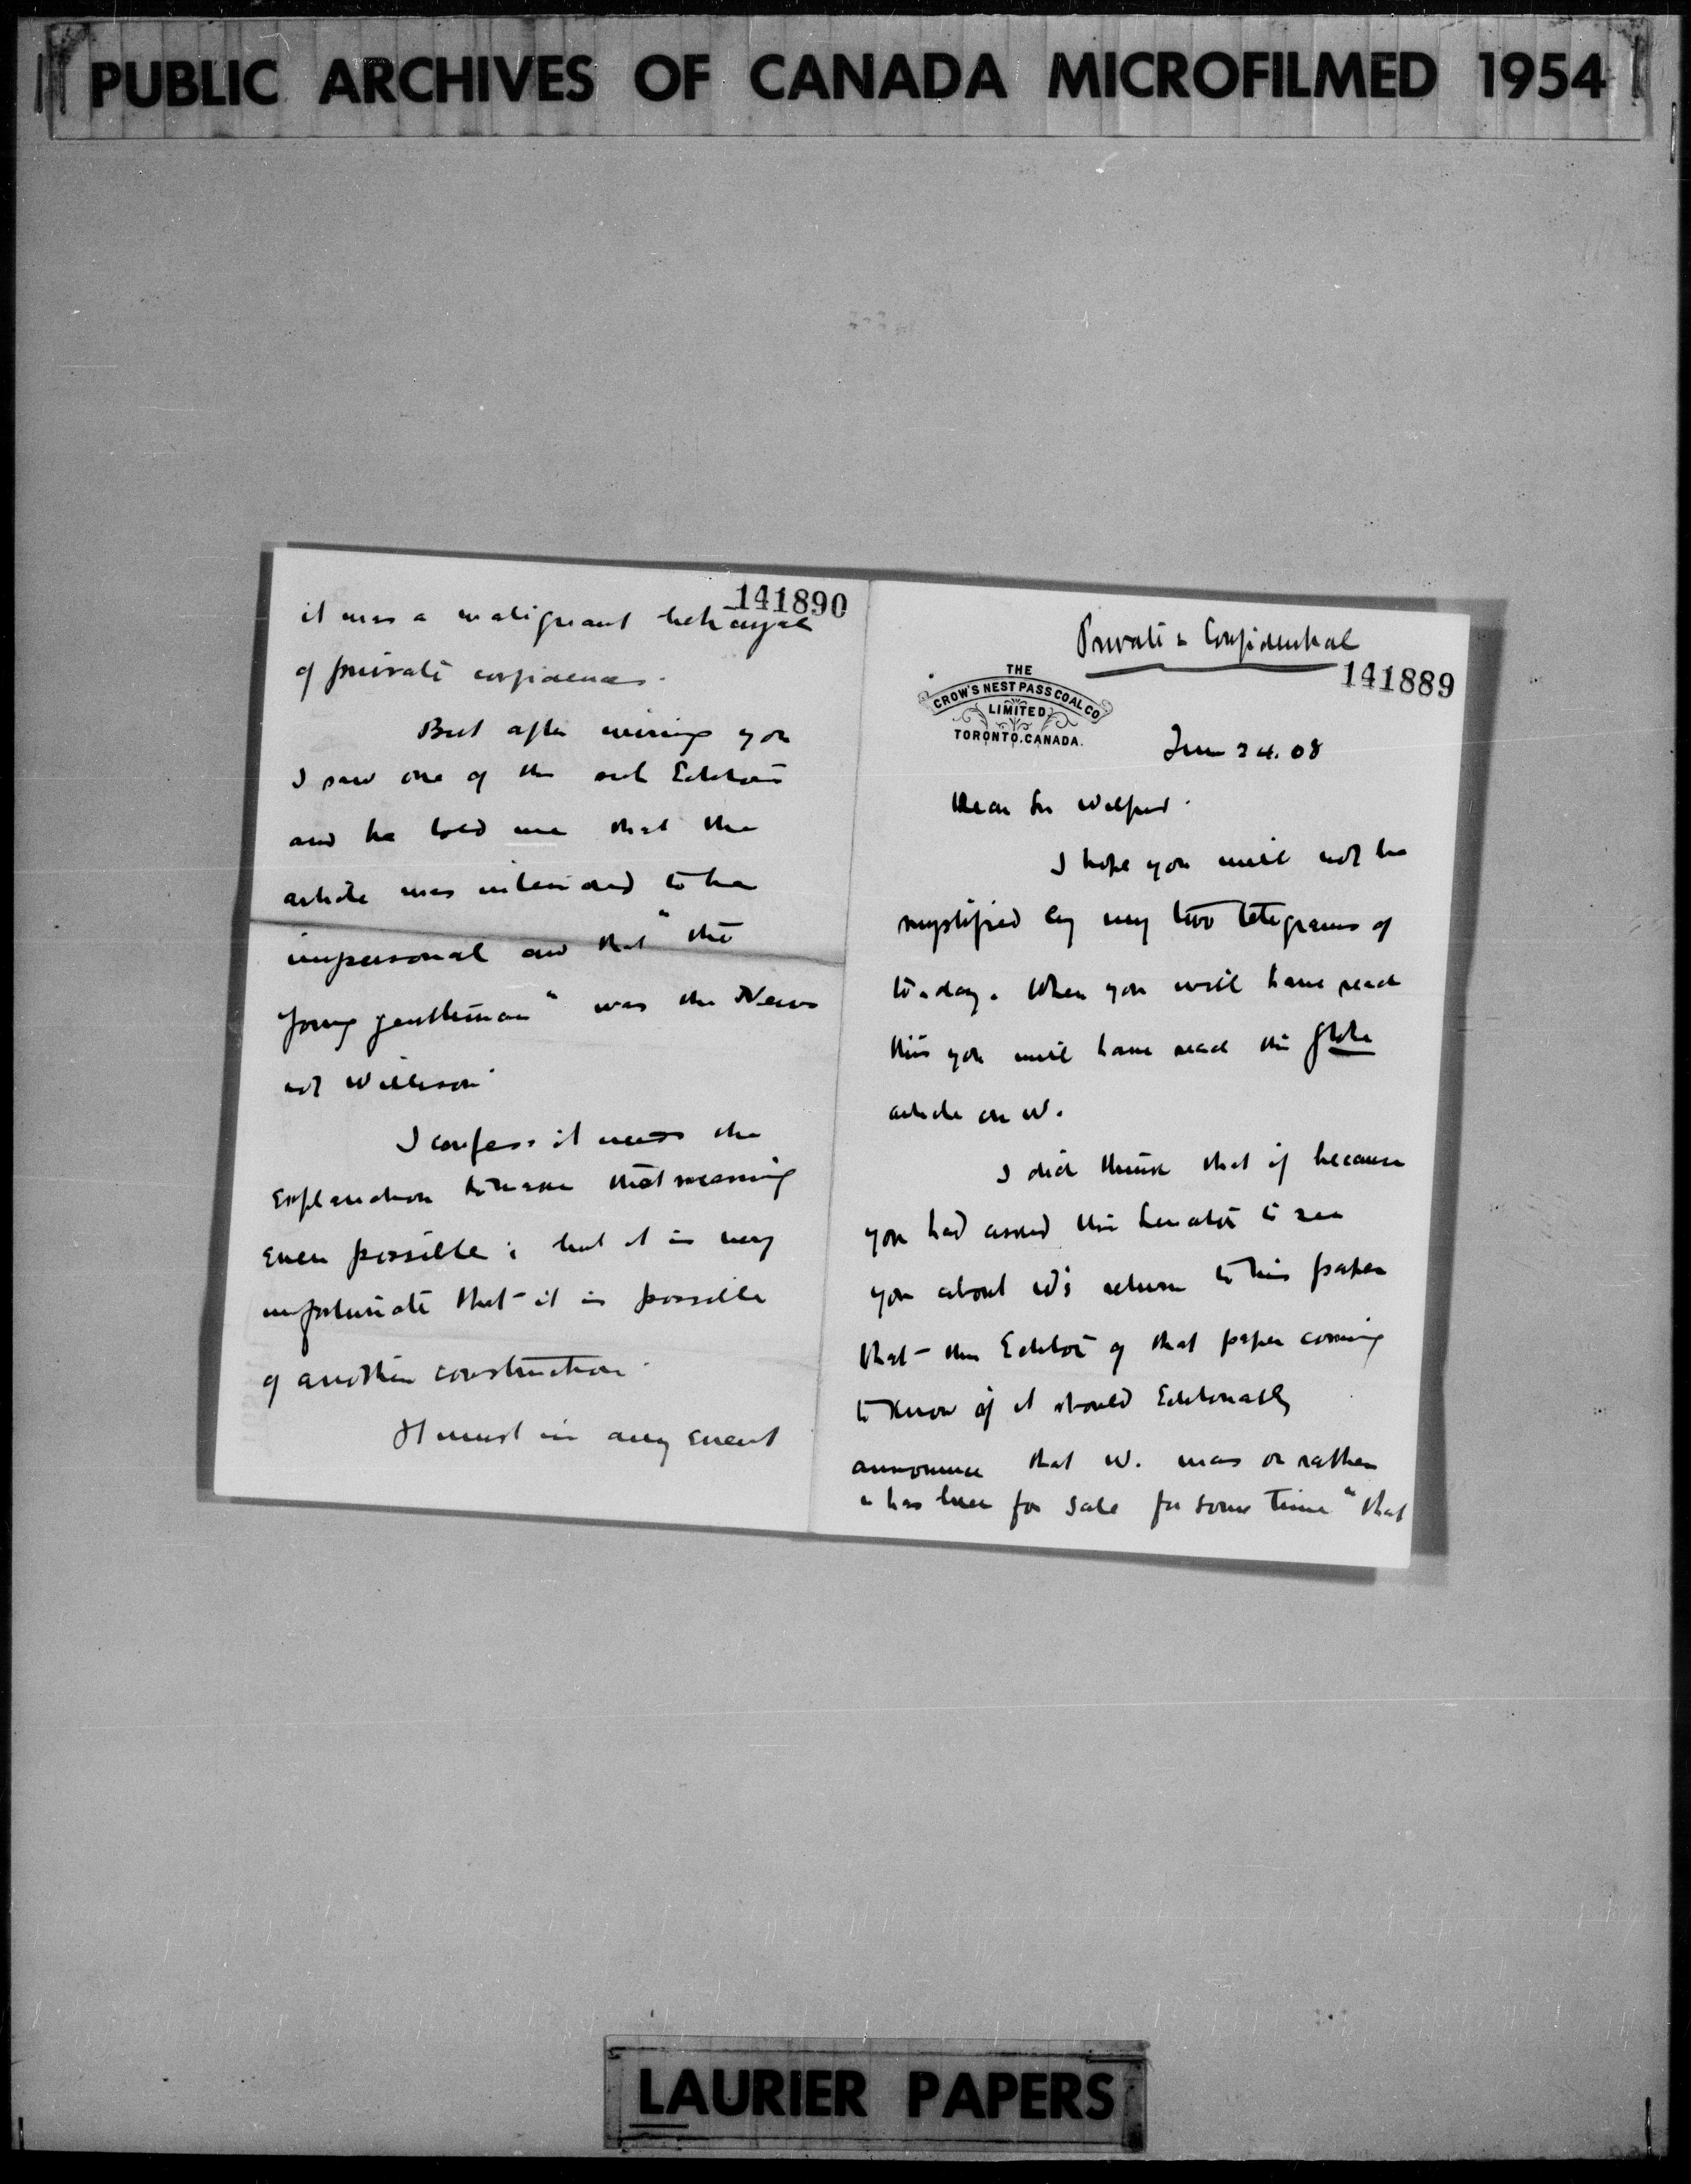 PUBLIC ARCHIVES OF CANADA MICROFILMED 1954
Private & Confidential
141889
THE
CROW'S NEST PASS COAL CO
LIMITED
TORONTO. CANADA.
24. 08
Dear Sir Wilfrid.
I hope you will not be
mystified by my two telegrams of
to-day. When you will have read
this you will have read the Globe
article on W.
I did think that if because
you had asked this Senator to see
you about W's return to his paper
that the Editor of that paper coming
to know of it should Editorially
announce that W. was or rather
"has been for sale for some time" that
141890
it was a malignant betrayal
of private confidences.
But after wiring you
I saw one of the sub Editors
and he told me that the
article was intended to be
impersonal and that "the
young gentleman" was the News
not Willison.
I confess it needs the
explanation to make that meaning
even possible; but it is very
unfortunate that it is possible
of another construction.
It must in any event
LAURIER PAPERS